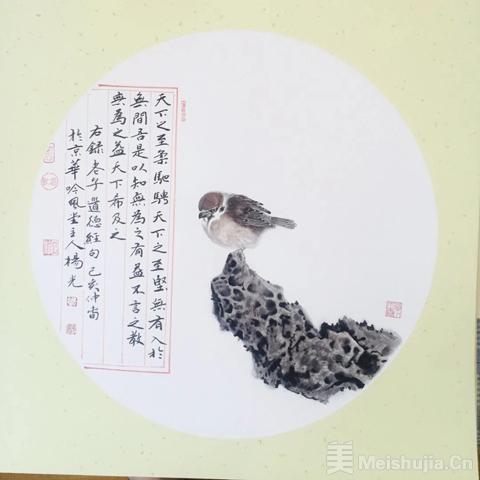 天下之至柔馳騁天下之至堅無有入於
無間吾是以知無為之有益不言之教
無為之益天下希及之
右錄老子道德經句己亥仲商
於京華吟風堂主人楊光
美 Meishujia.Cn